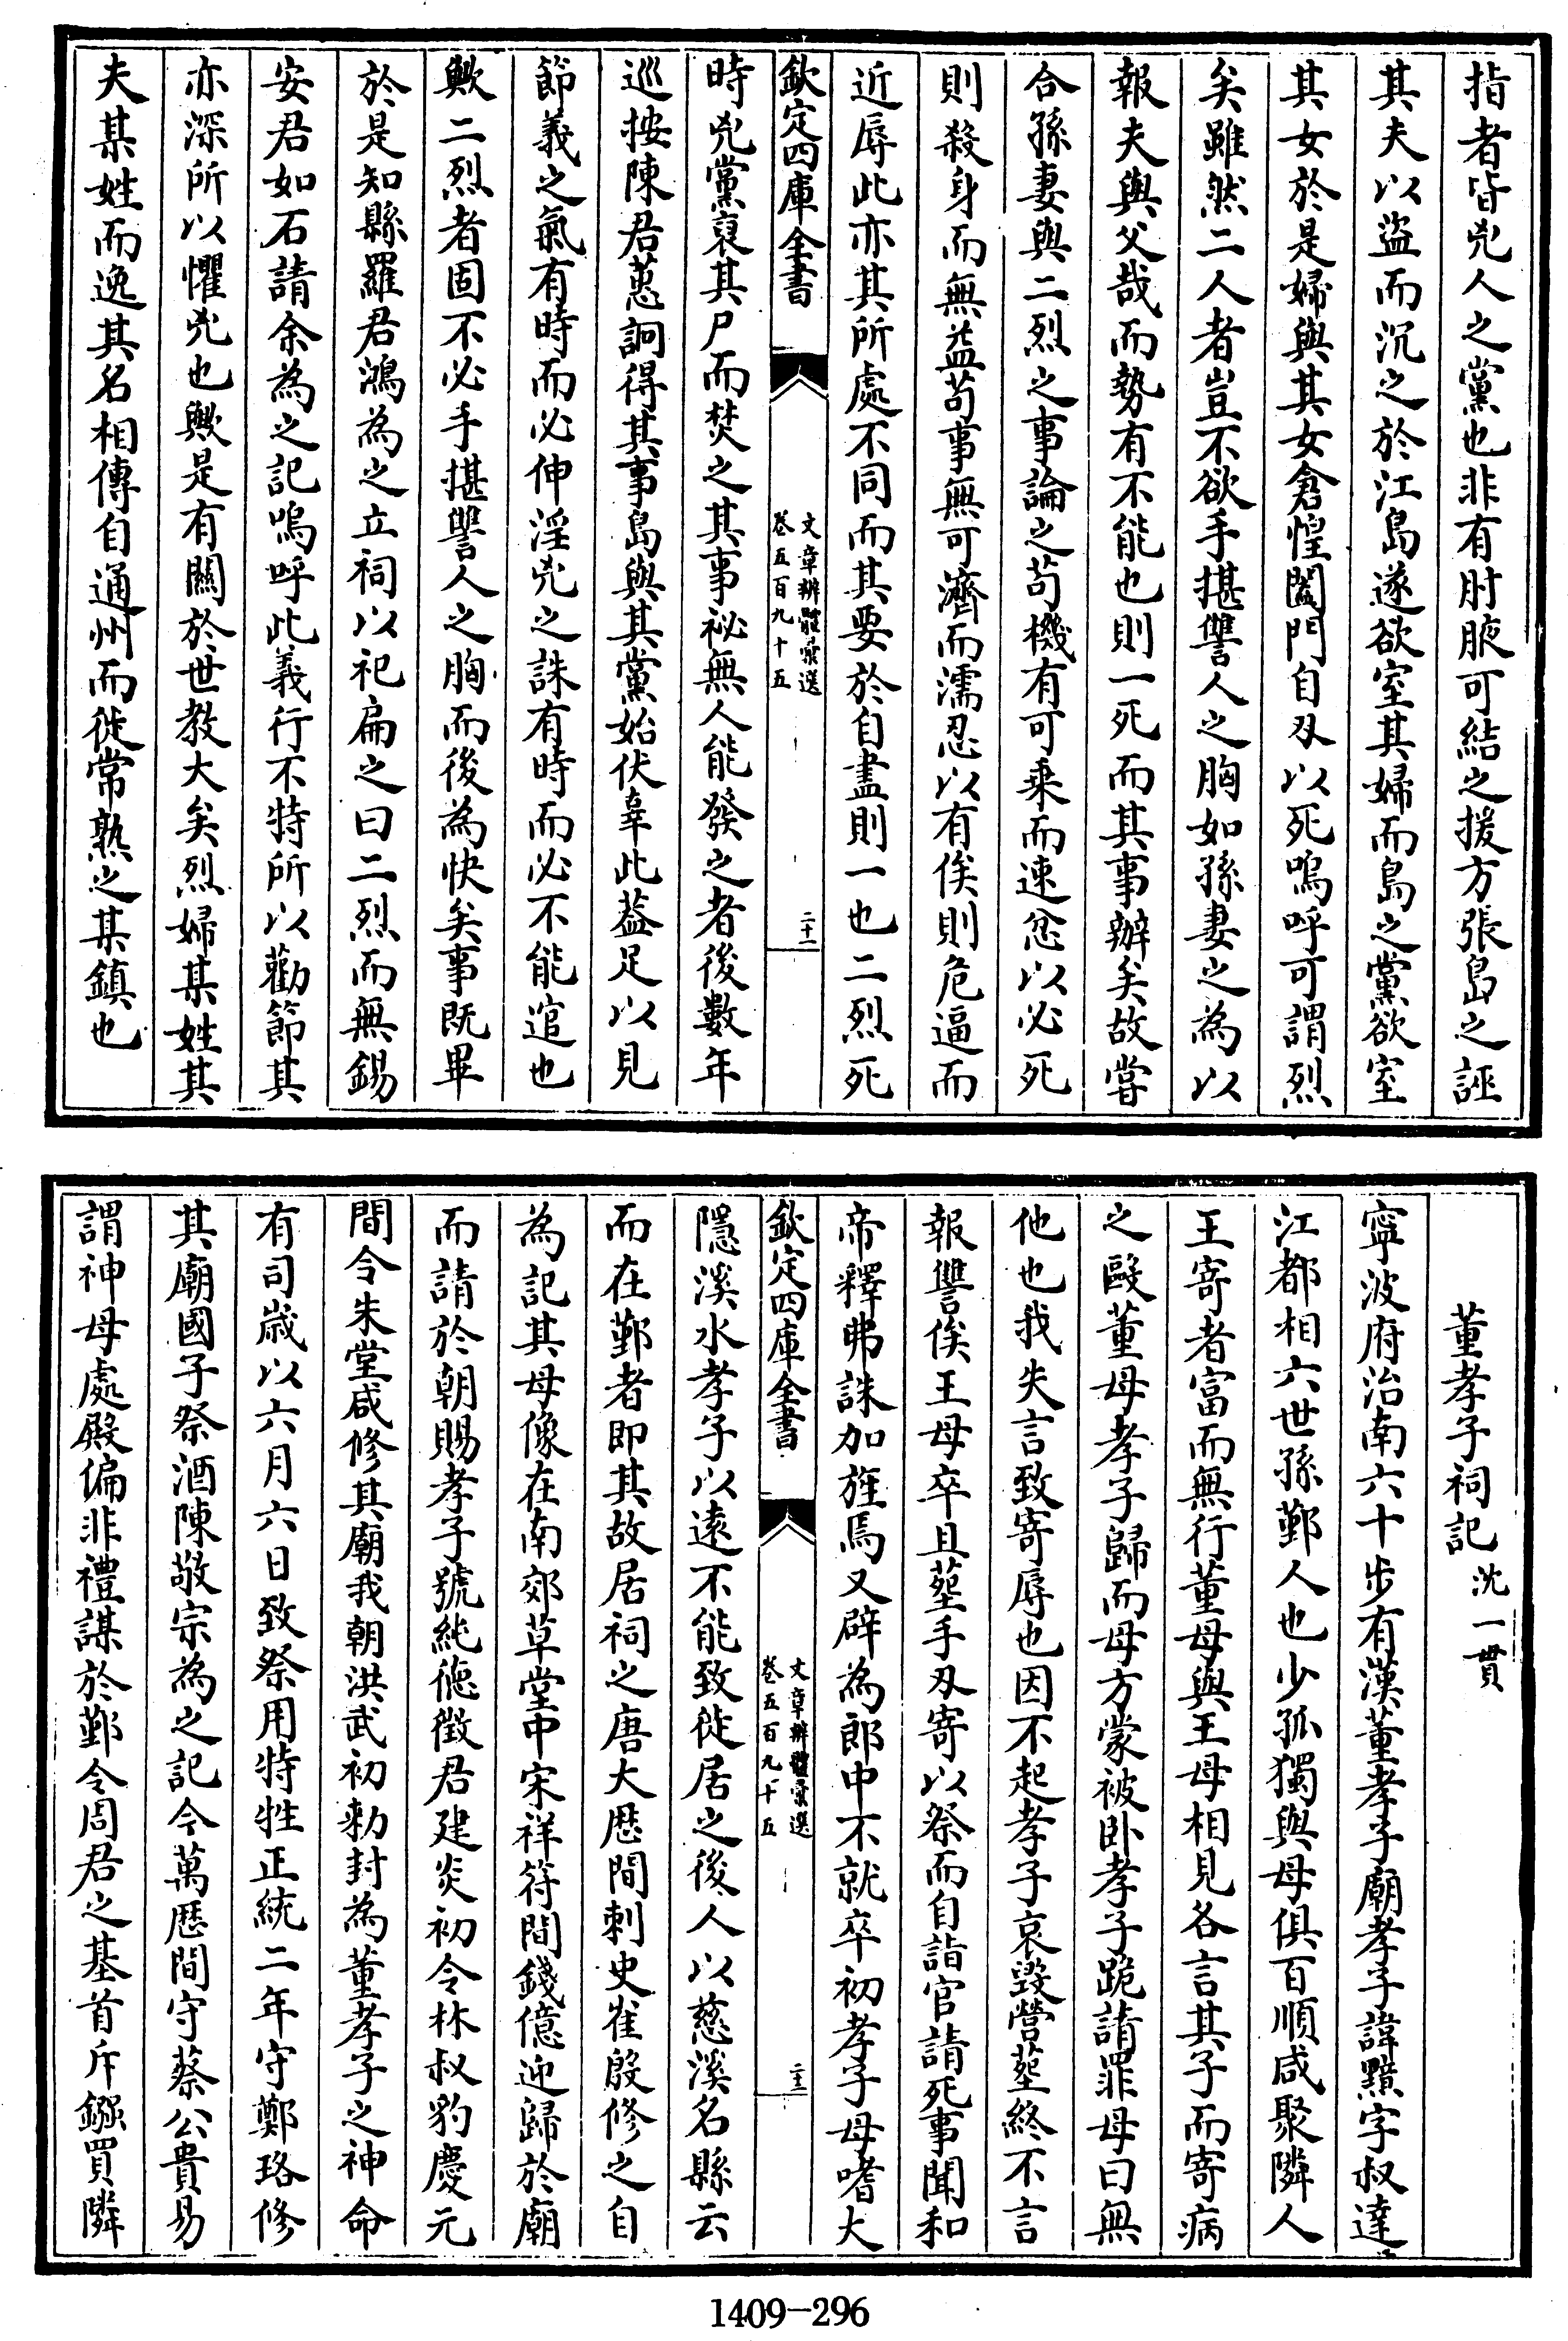 指者皆兇人之黨也非有肘腋可結之援方張島之誣
其夫以盜而沉之於江島遂欲室其婦而島之黨欲室
其女於是婦與其女倉惶闔門自刄以死嗚呼可謂烈
矣雖然二人者豈不欲手揕讐人之胸如孫妻之為以
報夫與父哉而勢有不能也則一死而其事辦矣故嘗
合孫妻與二烈之事論之苟機有可乗而速忿以必死
則殺身而無益苟事無可濟而濡忍以有俟則危逼而
近辱此亦其所處不同而其要於自盡則一也二烈死
欽定四庫全書
文章辨體彙選
卷五百九十五
二十一
時兇黨裒其尸而焚之其事祕無人能發之者後數年
巡按陳君蕙詗得其事島與其黨始伏辜此葢足以見
節義之氣有時而必伸淫兇之誅有時而必不能逭也
歟二烈者固不必手揕讐人之胸而後為快矣事既畢
於是知縣羅君鴻為之立祠以祀扁之曰二烈而無錫
安君如石請余為之記嗚呼此義行不特所以勸節其
亦深所以懼兇也歟是有關於世教大矣烈婦某姓其
夫某姓而逸其名相傳自通州而徙常熟之某鎮也
董孝子祠記 沈一貫
寧波府治南六十步有漢董孝子廟孝子諱黯字叔達
江都相六世孫鄞人也少孤獨與母俱百順咸聚隣人
王寄者富而無行董母與王母相見各言其子而寄病
之毆董母孝子歸而母方蒙被卧孝子跪請罪母曰無
他也我失言致寄辱也因不起孝子哀毀營塟終不言
報讐俟王母卒且塟手刄寄以祭而自詣官請死事聞和
帝釋弗誅加旌焉又辟為郎中不就卒初孝子母嗜大
欽定四庫全書
文章辨體彙選
卷五百九十五
二十二
隱溪水孝子以遠不能致徙居之後人以慈溪名縣云
而在鄞者即其故居祠之唐大歴間刺史崔殷修之自
為記其母像在南郊草堂中宋祥符間錢億迎歸於廟
而請於朝賜孝子號純德徵君建炎初令林叔豹慶元
間令朱堂咸修其廟我朝洪武初勅封為董孝子之神命
有司歲以六月六日致祭用特牲正統二年守鄭珞修
其廟國子祭酒陳敬宗為之記今萬歴間守蔡公貴易
謂神母處殿偏非禮謀於鄞令周君之基首斥鏹買隣
1409-296